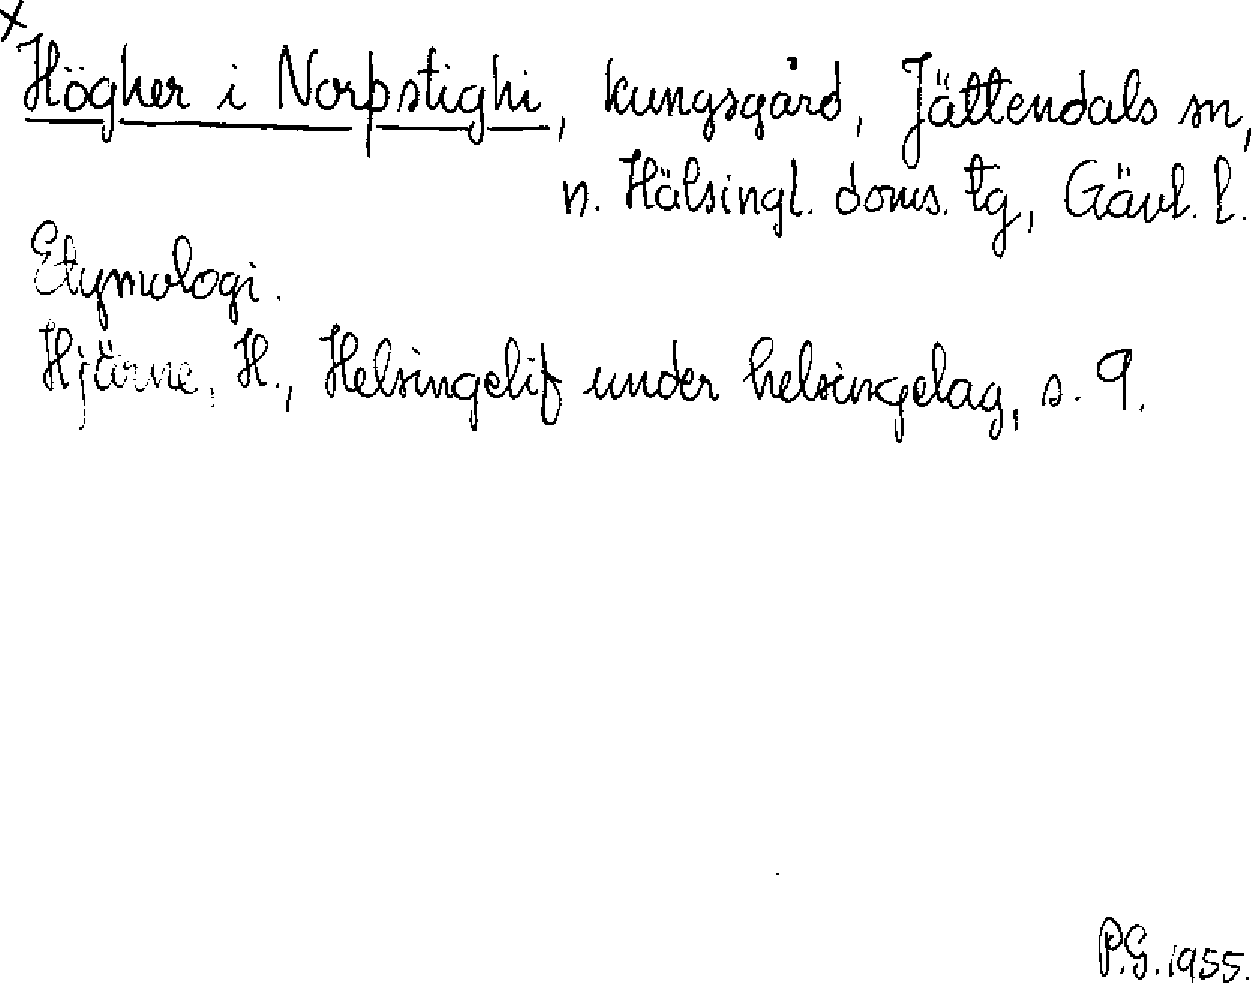 x
Högher i Norþstighi, kungsgård, Jättendals sn,
n. Hälsingl. doms. tg, Gävl. l.
Etymologi.
Hjärne, H., Helsingelif under helsingelag, s. 9.
P.G. 1955.